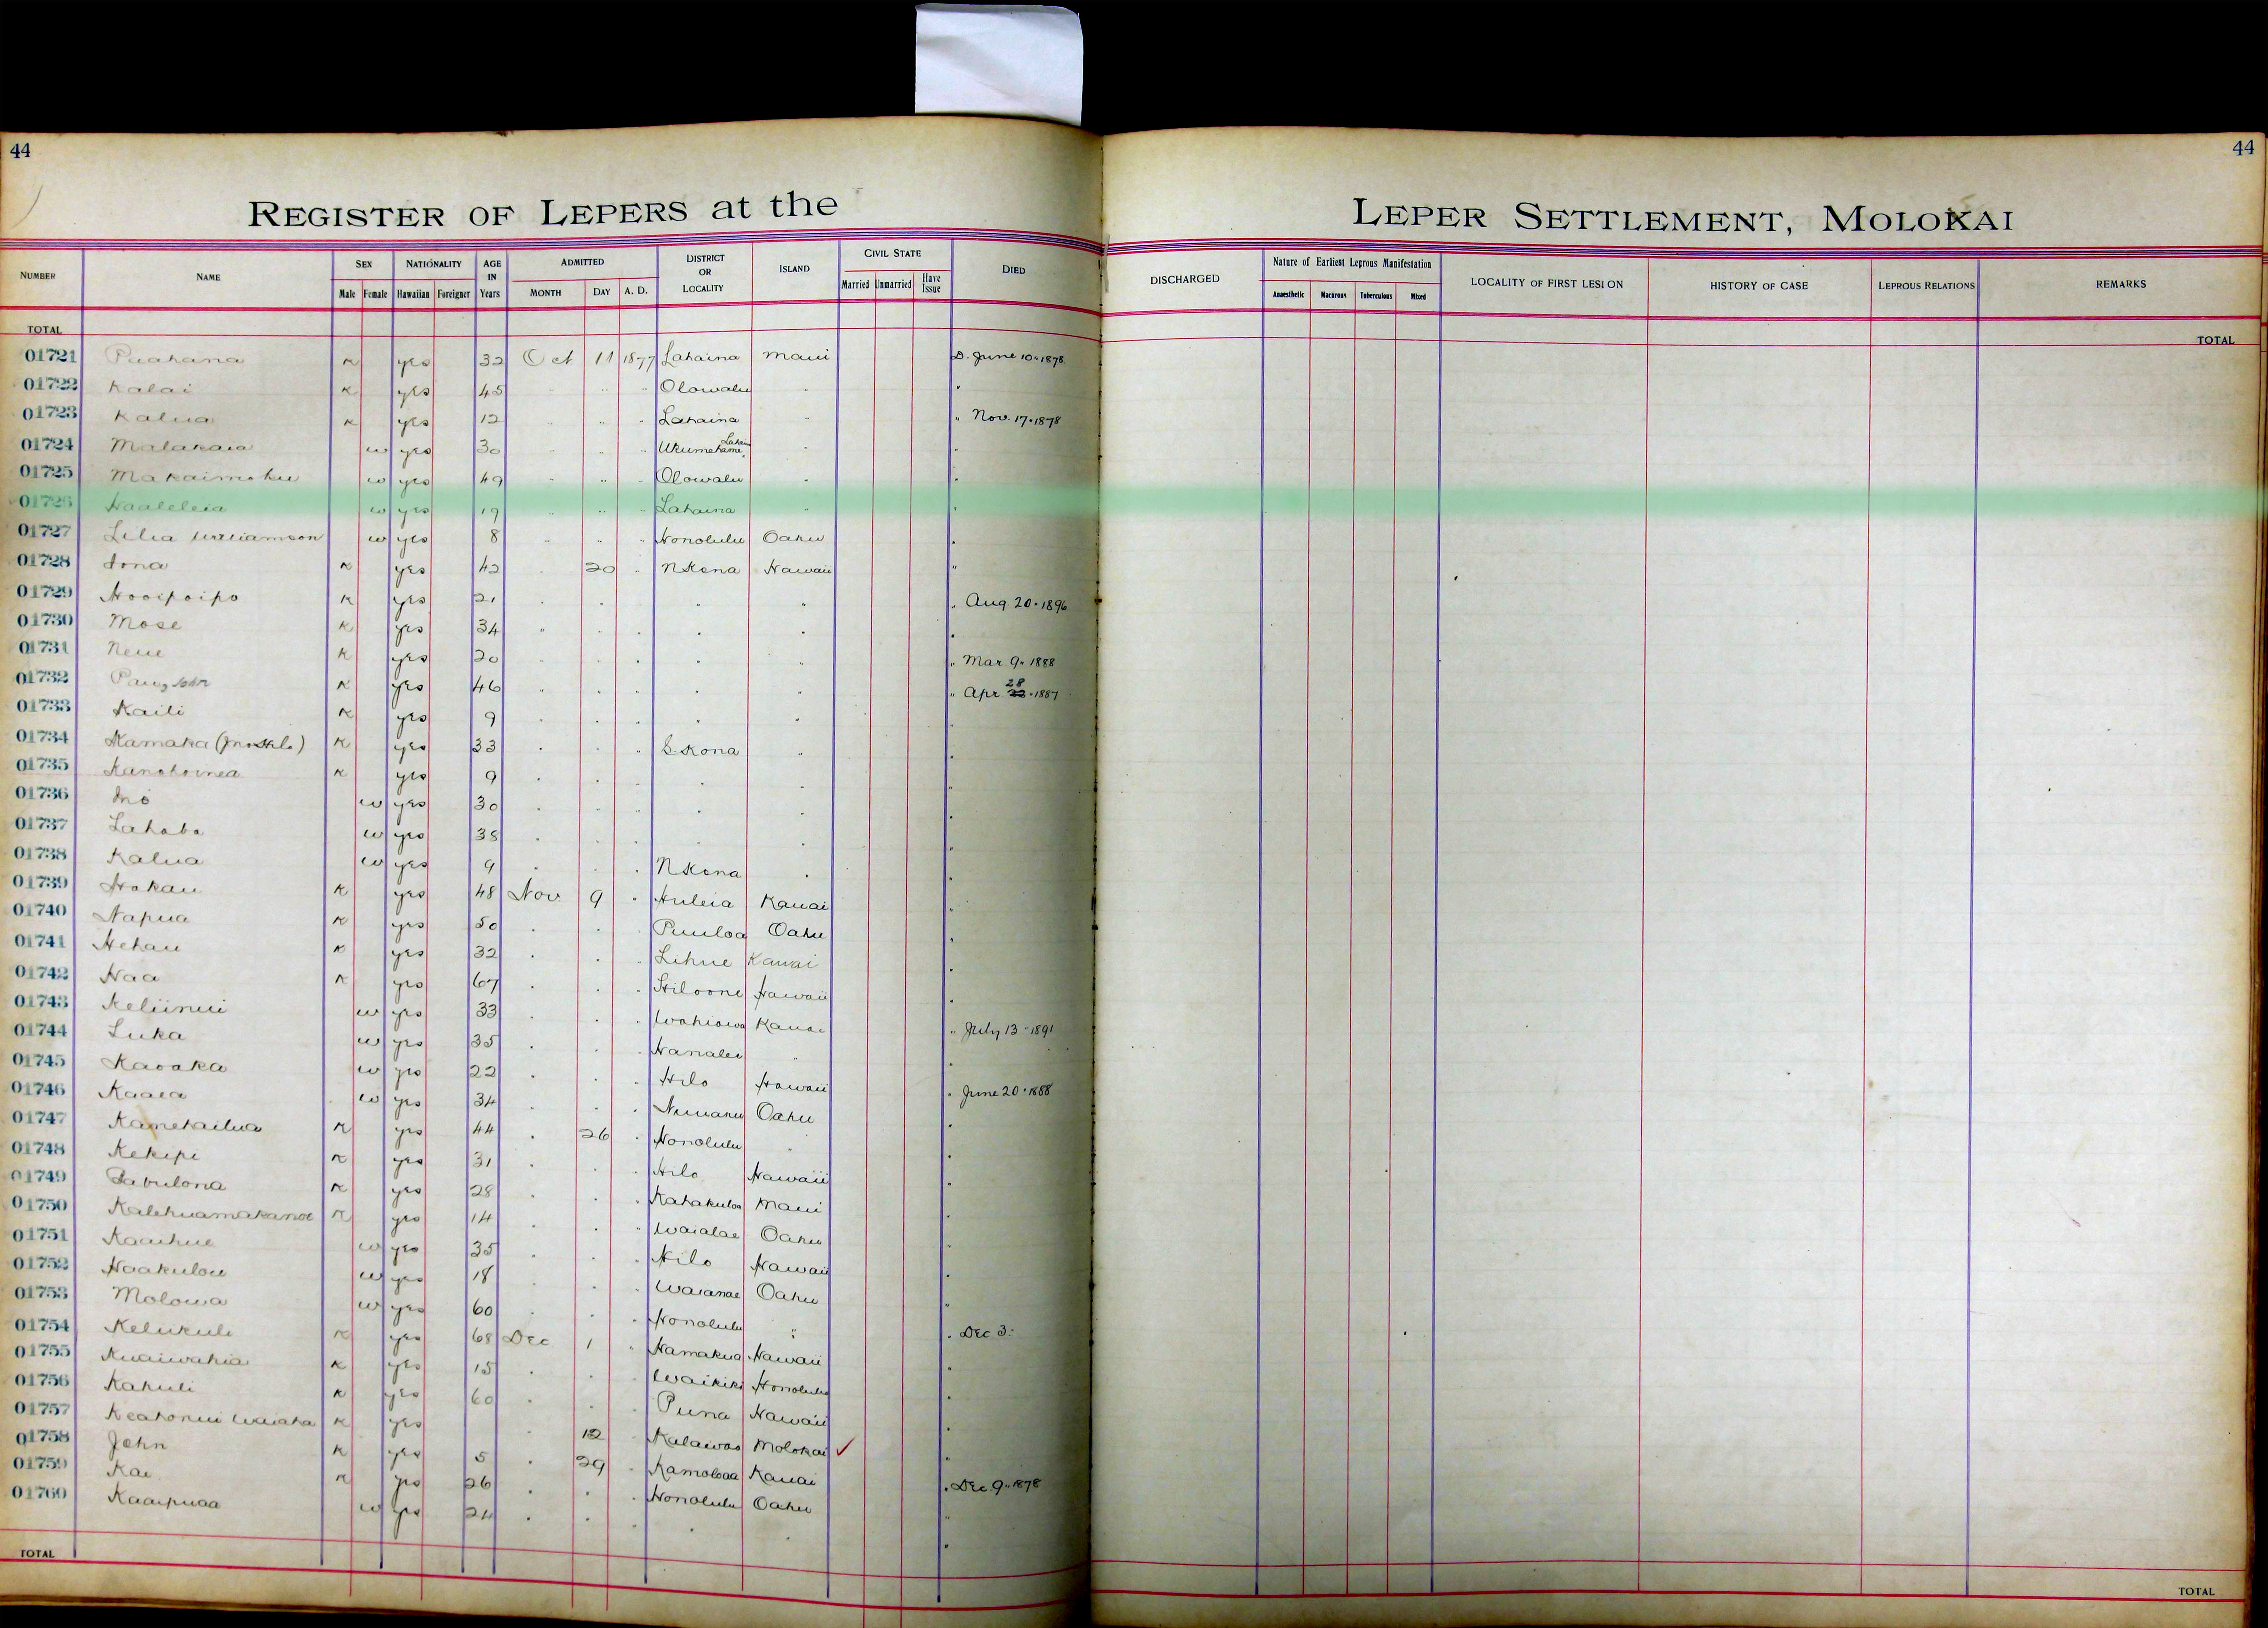 44
44
REGISTER OF LEPERS at the
LEPER SETTLEMENT, MOLOKAI
NUMBER NAME SEX Male Female NATIONALITY Hawaiian Foreigner AGE IN Years ADMITTED MONTH DAY A. D. DISTRICT OR LOCALITY ISLAND CIVIL STATE Married Unmarried Have Issue DIED
DISCHARGED Nature of Earliest Leprous Manifestation Anaesthetic Macurous Tuberculous Mixed LOCALITY OF FIRST LESION HISTORY OF CASE LEPROUS RELATIONS REMARKS
TOTAL
TOTAL
01721 Puahana K yes 32 Oct 11 1877 Lahaina Maui D. June 10 " 1878
01722 Kalai K yes 45 " " " Olowalu " "
01723 Kalua K yes 12 " " " Lahaina " " Nov. 17 " 1878
01724 Malakaia w yes 30 " " " Ukumehame " "
01725 Makaimoku w yes 49 " " " Olowalu " "
01726 Haaleleia w yes 19 " " " Lahaina " "
01727 Lilia Williamson w yes 8 " " " Honolulu Oahu "
01728 Iona K yes 42 " 20 " N Kona Hawaii "
01729 Hooipoipo K yes 21 " " " " " " Aug. 20 " 1896
01730 Mose K yes 34 " " " " " "
01731 Neue K yes 20 " " " " " " Mar 9 " 1888
01732 John K yes 46 " " " " " " Apr 28 " 1887
01733 Kaili K yes 9 " " " " " "
01734 Kamaka K yes 33 " " " S. Kona " "
01735 K yes 9 " " " " " "
01736 w yes 30 " " " " " "
01737 Lahaba w yes 38 " " " " " "
01738 Kalua w yes 9 " " " N Kona " "
01739 Hokau K yes 48 Nov 9 " Huleia Kauai "
01740 Napua K yes 50 " " " Puuloa Oahu "
01741 Hehau K yes 32 " " " Lihue Kauai "
01742 Naa K yes 67 " " " Hiloone Hawaii "
01743 Keliinui w yes 33 " " " Wahiawa Kauai " July 13 " 1891
01744 Luka w yes 35 " " " Hanalei " "
01745 Kaoaka w yes 22 " " " Hilo Hawaii " June 20 " 1888
01746 Kaaea w yes 34 " " " Nuuanu Oahu "
01747 Kamehailua K yes 44 " 26 " Honolulu " "
01748 Kekipi K yes 31 " " " Hilo Hawaii "
01749 Sabulona K yes 28 " " " Kahakuloa Maui "
01750 Kalehuamakanoe K yes 14 " " " Waialae Oahu "
01751 Kaaihue w yes 35 " " " Hilo Hawaii "
01752 Haakulou w yes 18 " " " Waianae Oahu "
01753 Molowa w yes 60 " " " Honolulu " " Dec 3 "
01754 Kelikuli K yes 68 Dec 1 " Hamakua Hawaii "
01755 Kuaiwahia K yes 15 " " " Waikiki Honolulu "
01756 Kahuli K yes 60 " " " Puna Hawaii "
01757 Keahonui Waiaha K yes " 12 " Kalawao Molokai ✓ "
01758 John K yes 5 " 29 " Kamoloaa Kauai " Dec 9 " 1878
01759 Kai K yes 26 " " " Honolulu Oahu "
01760 Kaaipuaa w yes 24 " " " " " "
TOTAL
TOTAL